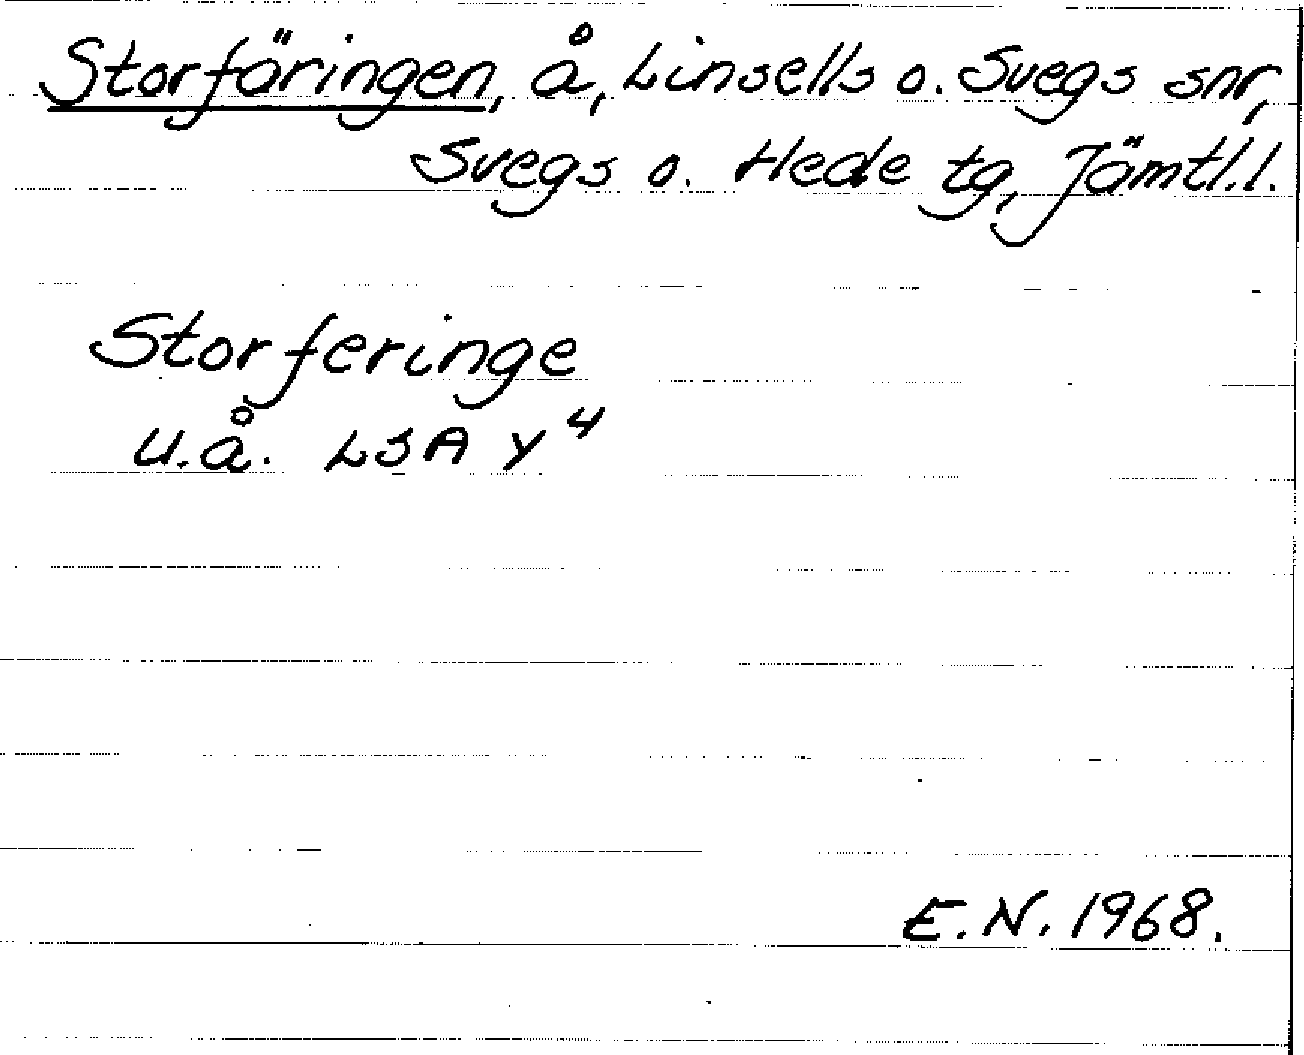 Storfäringen, å, Linsells o. Svegs snr,
Svegs o. Hede tg, Jämtl.l.
Storferinge
u.å. LSA Y⁴
E.N. 1968.